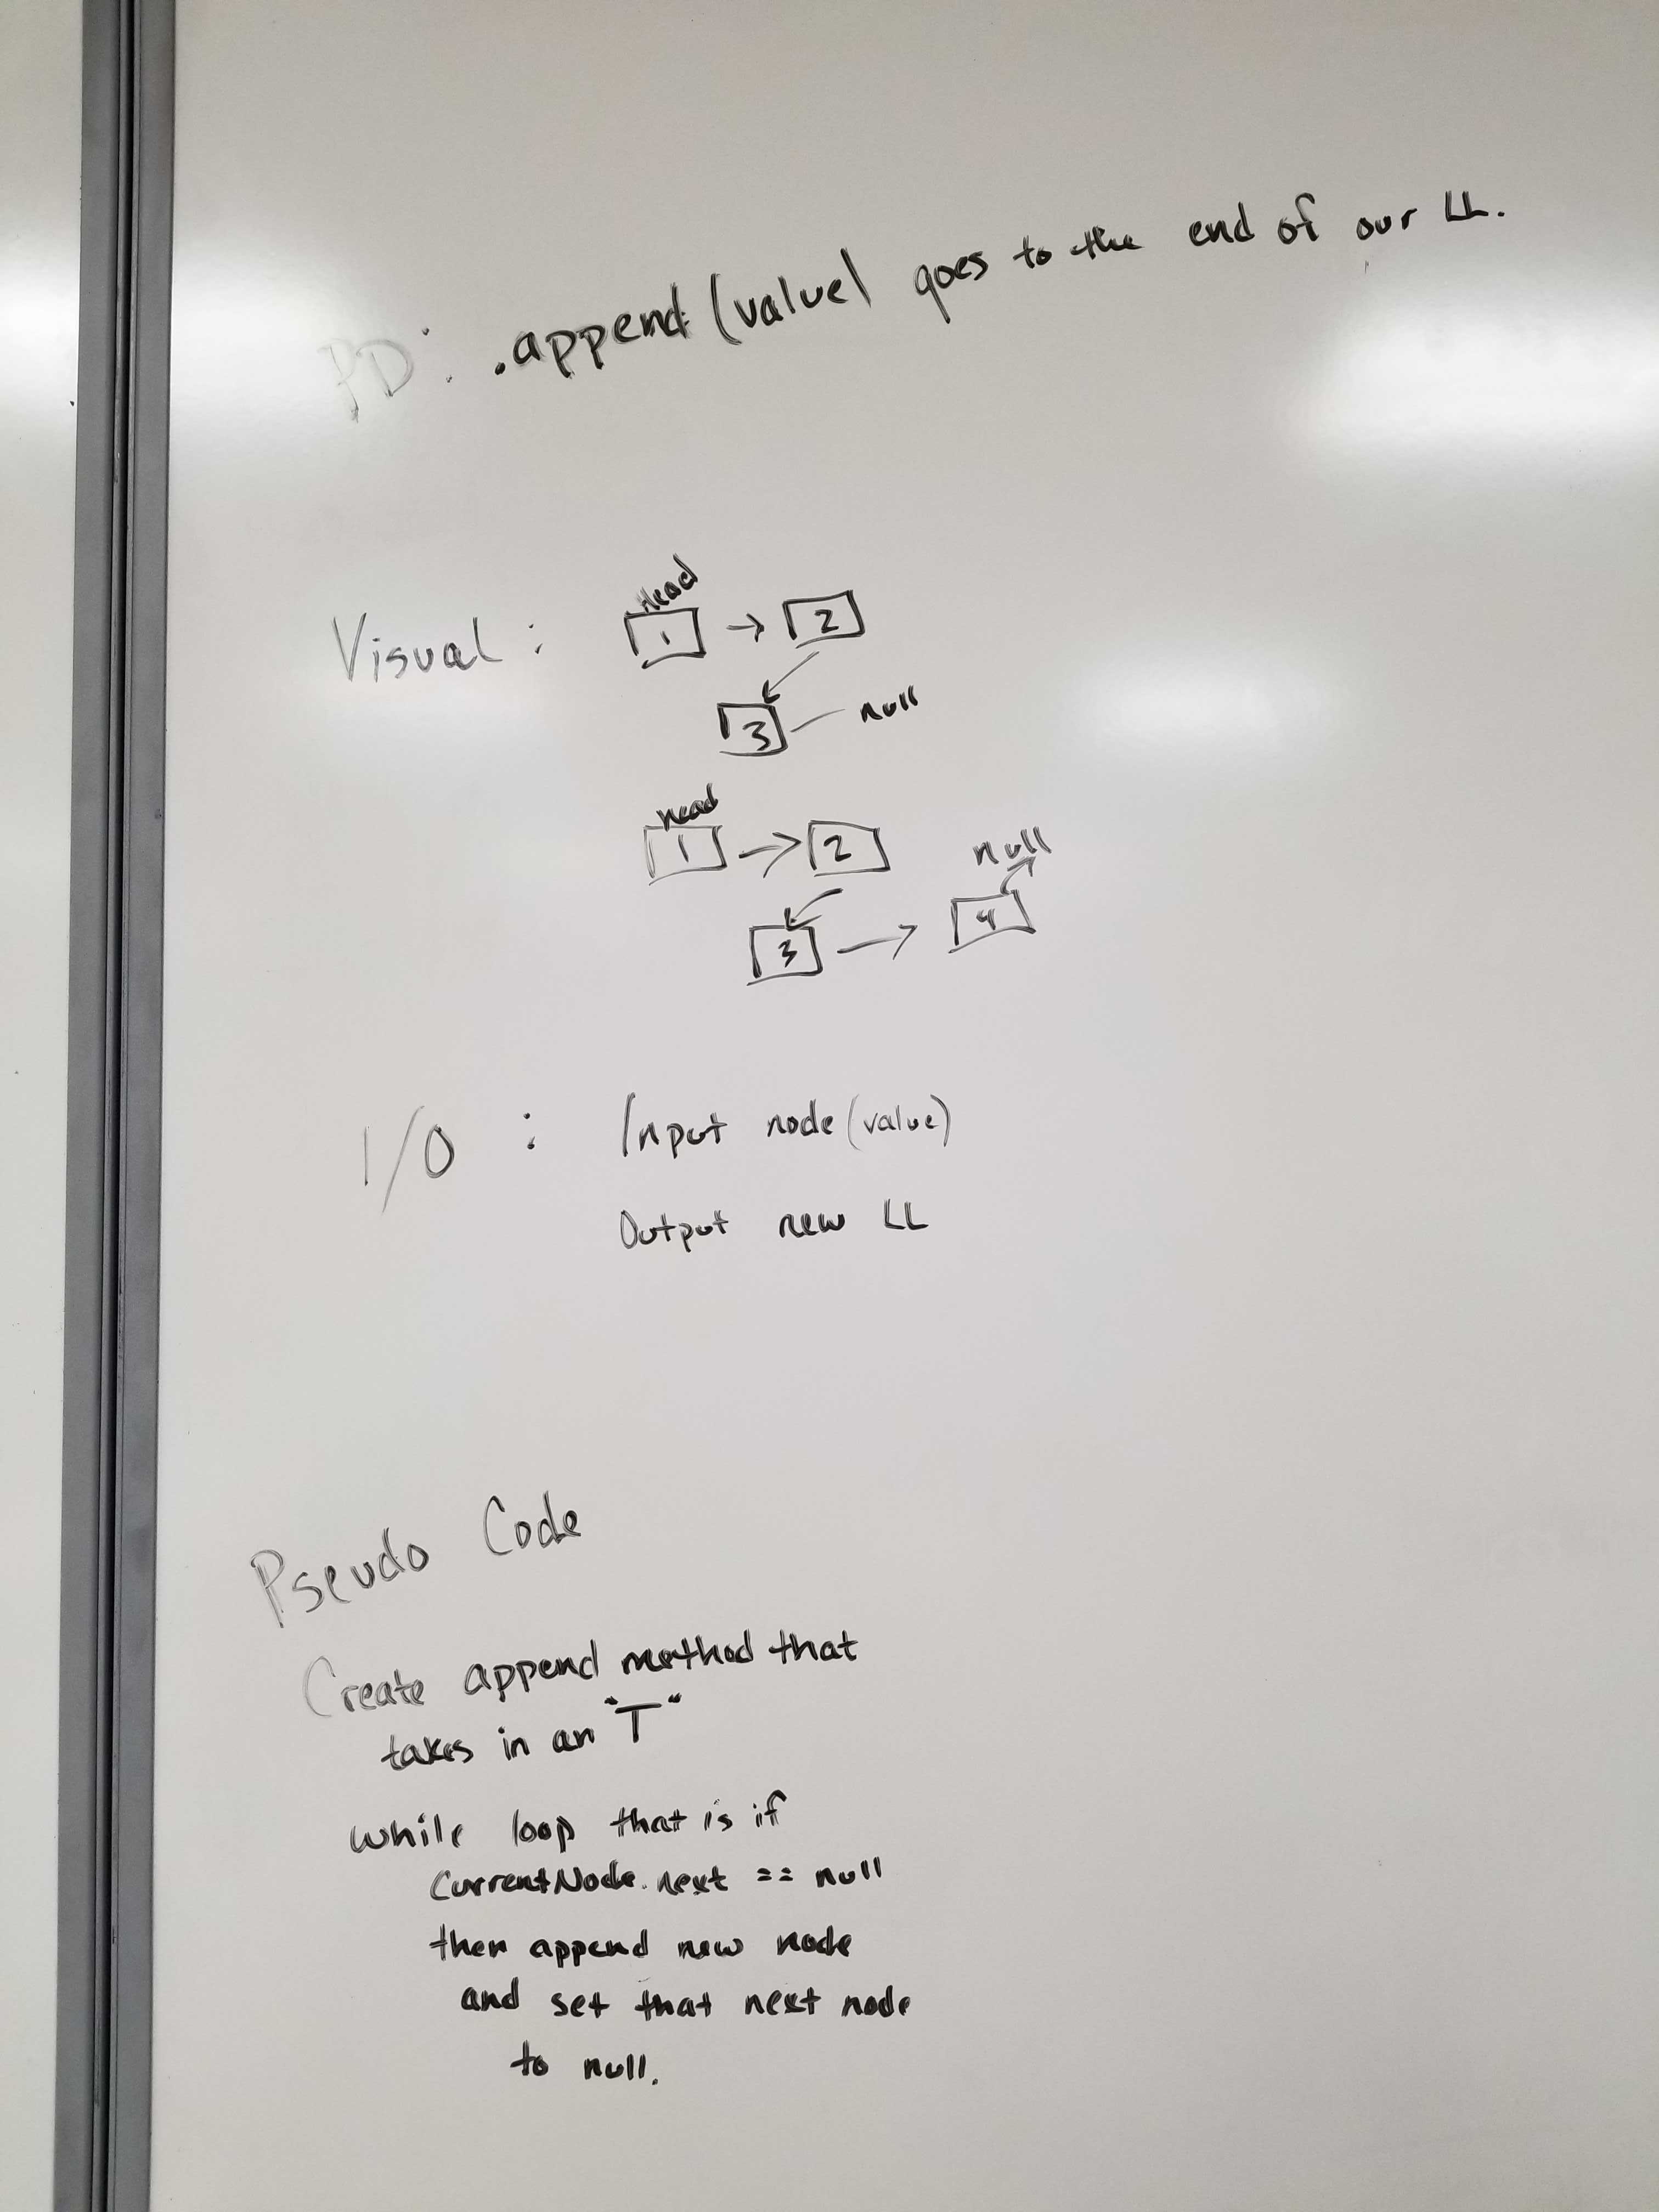 PD: .append(value) goes to the end of our LL.
Visual:
Head
1 → 2
3 null
Head
1 → 2
null
3 → 4
I/O : Input node(value)
Output new LL
Pseudo Code
Create append method that
takes in an "T"
while loop that is if
CurrentNode.next == null
then append new node
and set that next node
to null.